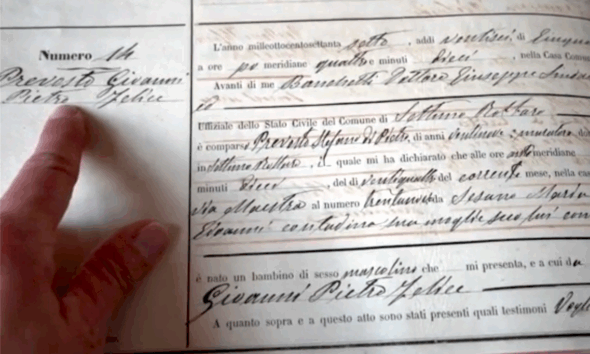 Numero 14
Prevosto Giovanni
Pietro Felice
L'anno milleottocentosettanta sette, addi ventisei di Giugno
a ore po meridiane quattro e minuti dieci, nella Casa Comun
Avanti di me Banchetti Dottore Giuseppe Sinda
co
Uffiziale dello Stato Civile del Comune di Settimo Rottaro
è comparso Prevosto Stefano di Pietro, di anni ventinove, muratore, do
in Settimo Rottaro, il quale mi ha dichiarato che alle ore meridiane
minuti dieci, del dì ventiquattro del corrente mese, nella casa
via Maestra al numero da Maria
Giovanni contadina sua moglie seco lui con
è nato un bambino di sesso mascolino che mi presenta, e a cui da
Giovanni Pietro Felice
A quanto sopra e a questo atto sono stati presenti quali testimoni